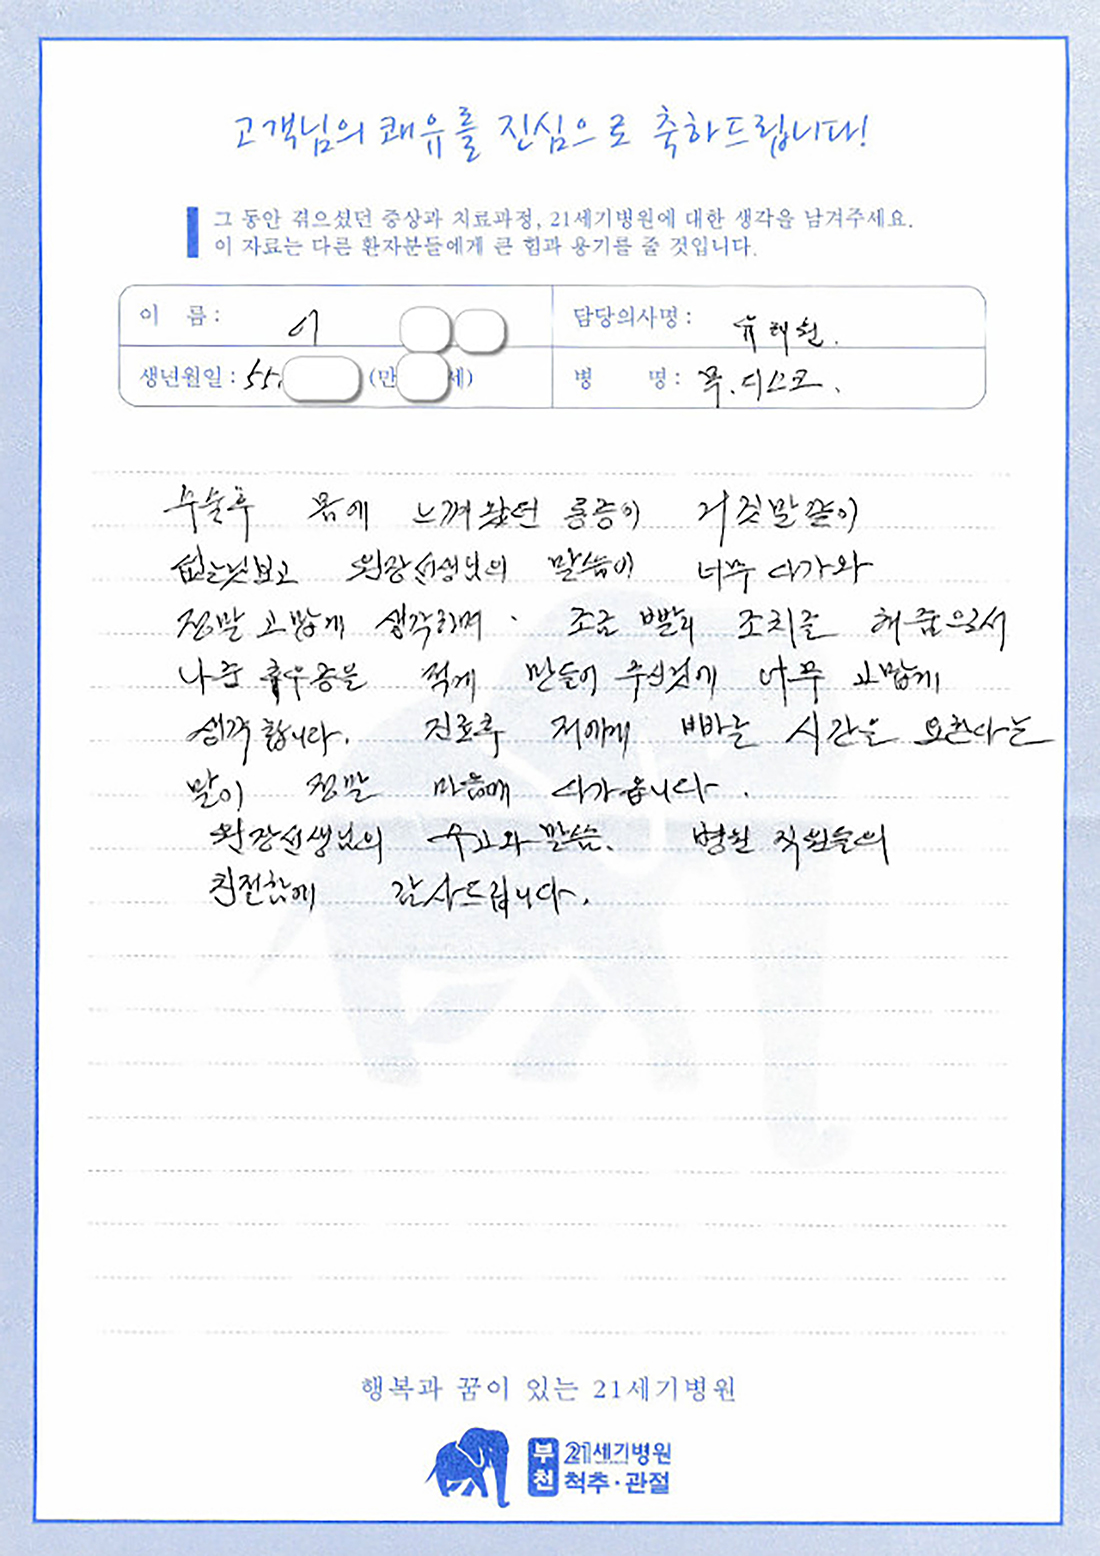 고객님의 쾌유를 진심으로 축하드립니다!
그 동안 겪으셨던 증상과 치료과정, 21세기병원에 대한 생각을 남겨주세요.
이 자료는 다른 환자분들에게 큰 힘과 용기를 줄 것입니다.
이 름 : 이
담당의사명 : 유해원.
생년월일 : 55. (만 세)
병 명 : 목. 디스크.
수술후 몸에 느껴왔던 통증이 거짓말같이
없는것보고 원장선생님의 말씀이 너무 다가와
정말 고맙게 생각하며. 조금 빨리 조치를 해줌으로서
나쁜 휴우증을 적게 만들어 주신것에 너무 고맙게
생각합니다. 진료후 저에게 빠른 시간을 요한다는
말이 정말 마음에 다가옵니다.
원장선생님의 수고와 말씀. 병원 직원들의
친절함에 감사드립니다.
행복과 꿈이 있는 21세기병원
부천 21세기병원
척추·관절